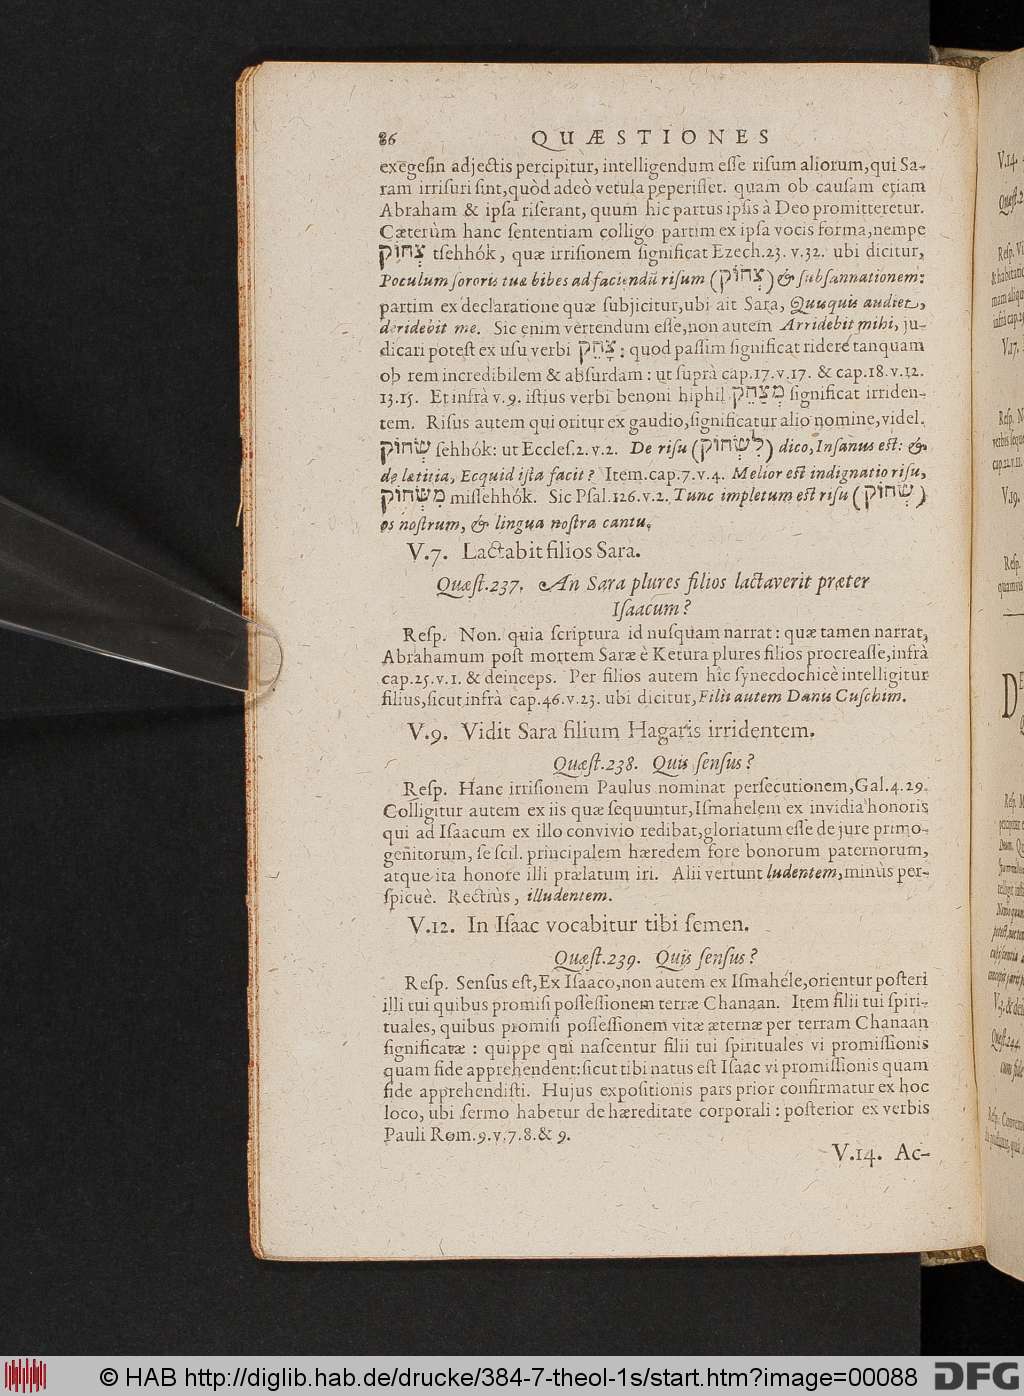 86 QUÆSTIONES
exegesin adjectis percipitur, intelligendum esse risum aliorum, qui Sa-
ram irrisuri sint, quòd adeò vetula peperisset. quam ob causam etiam
Abraham & ipsa riserant, quum hic partus ipsis à Deo promitteretur.
Cæterùm hanc sententiam colligo partim ex ipsa vocis forma, nempe
צְחוֹק tsehhók, quæ irrisionem significat Ezech.23. v.32. ubi dicitur,
Poculum sororis tuæ bibes ad faciendū risum (צְחוֹק) & subsannationem:
partim ex declaratione quæ subjicitur, ubi ait Sara, Quisquis audiet,
deridebit me. Sic enim vertendum esse, non autem Arridebit mihi, ju-
dicari potest ex usu verbi צָחֵק: quod passim significat ridere tanquam
ob rem incredibilem & absurdam: ut suprà cap.17. v.17. & cap.18. v.12.
13.15. Et infrà v.9. istius verbi benoni hiphil מְצַחֵק significat irriden-
tem. Risus autem qui oritur ex gaudio, significatur alio nomine, videl.
שְׂחוֹק sehhók: ut Eccles.2. v.2. De risu (לִשְׂחוֹק) dico, Insanus est: &
de lætitia, Ecquid ista facit? Item.cap.7. v.4. Melior est indignatio risu,
מִשְּׂחוֹק missehhók. Sic Psal.126. v.2. Tunc impletum est risu (שְׂחוֹק)
os nostrum, & lingua nostra cantu.
V.7. Lactabit filios Sara.
Quæst.237. An Sara plures filios lactaverit præter
Isaacum?
Resp. Non. quia scriptura id nusquam narrat: quæ tamen narrat,
Abrahamum post mortem Saræ è Ketura plures filios procreasse, infrà
cap.25. v.1. & deinceps. Per filios autem hîc synecdochicè intelligitur
filius, sicut infrà cap.46. v.23. ubi dicitur, Filii autem Danis Cuschim.
V.9. Vidit Sara filium Hagaris irridentem.
Quæst.238. Quis sensus?
Resp. Hanc irrisionem Paulus nominat persecutionem, Gal.4.29.
Colligitur autem ex iis quæ sequuntur, Ismahelem ex invidia honoris
qui ad Isaacum ex illo convivio redibat, gloriatum esse de jure primo-
genitorum, se scil. principalem hæredem fore bonorum paternorum,
atque ita honore illi prælatum iri. Alii vertunt ludentem, minùs per-
spicuè. Rectiùs, illudentem.
V.12. In Isaac vocabitur tibi semen.
Quæst.239. Quis sensus?
Resp. Sensus est, Ex Isaaco, non autem ex Ismahele, orientur posteri
illi tui quibus promisi possessionem terræ Chanaan. Item filii tui spiri-
tuales, quibus promisi possessionem vitæ æternæ per terram Chanaan
significatæ: quippe qui nascentur filii tui spirituales vi promissionis
quam fide apprehendent: sicut tibi natus est Isaac vi promissionis quam
fide apprehendisti. Hujus expositionis pars prior confirmatur ex hoc
loco, ubi sermo habetur de hæreditate corporali: posterior ex verbis
Pauli Rom.9. v.7.8. & 9.
V.14. Ac-
© HAB http://diglib.hab.de/drucke/384-7-theol-1s/start.htm?image=00088
DFG